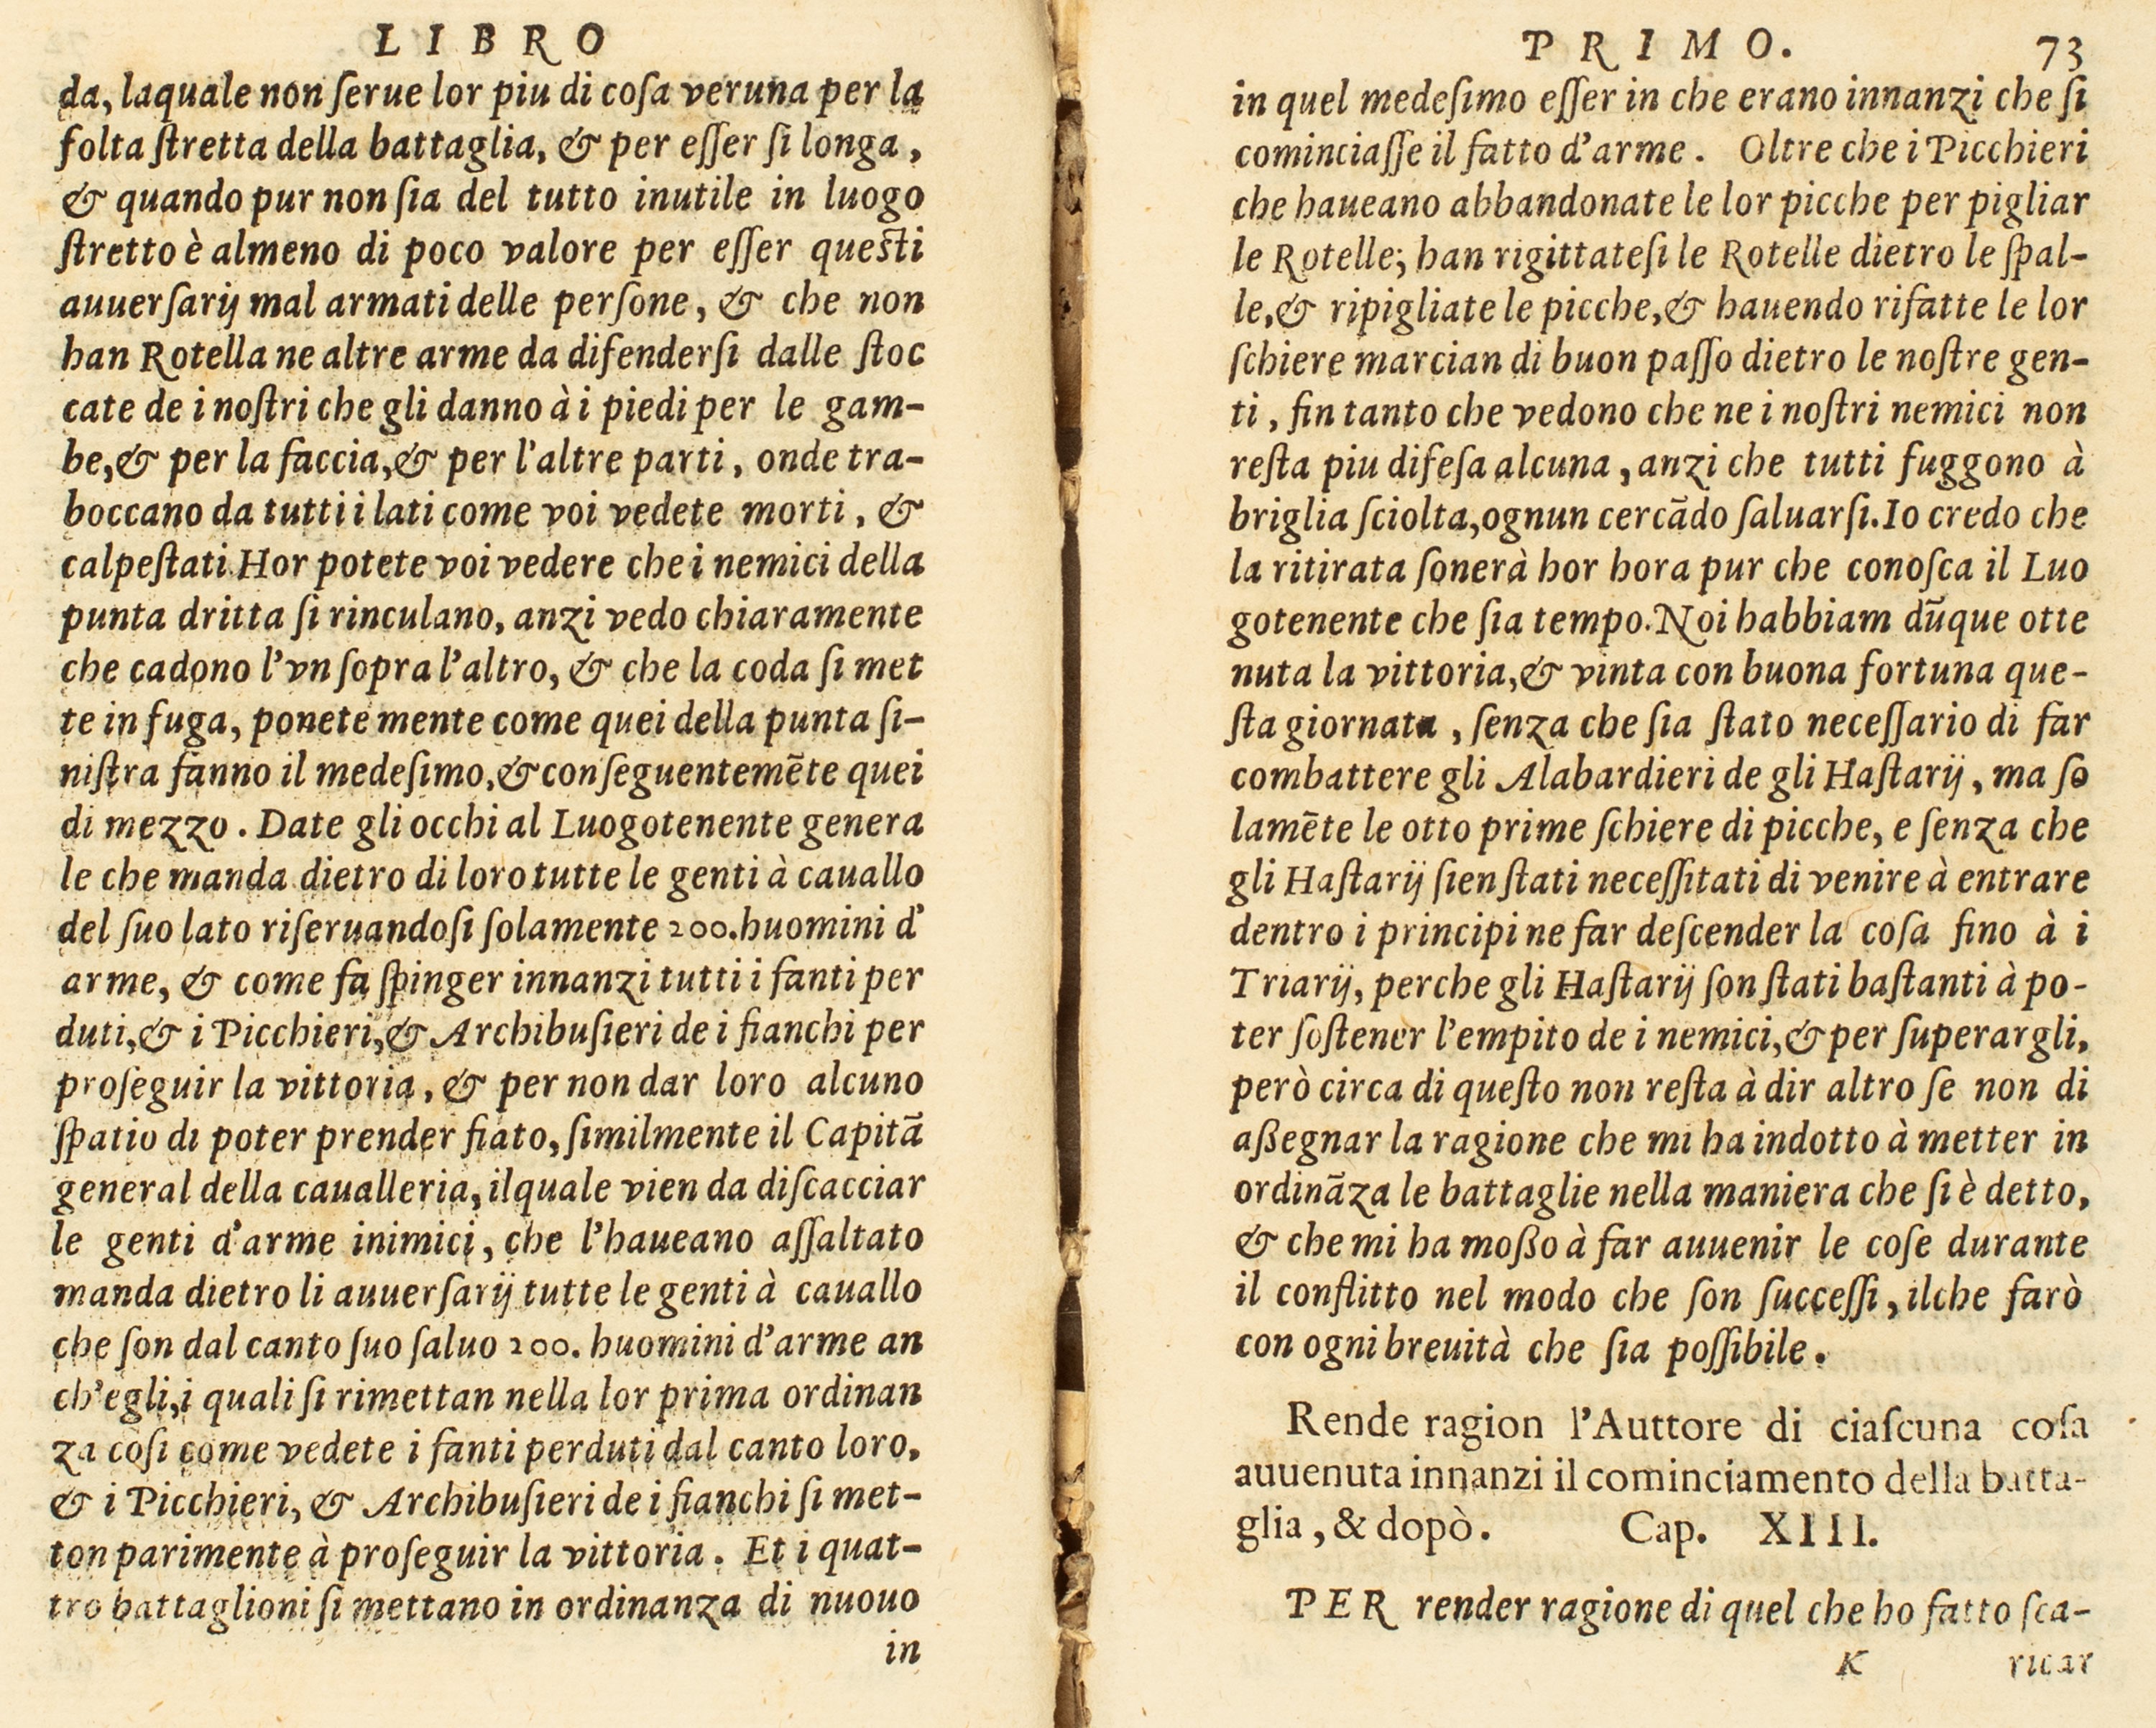 LIBRO
da, laquale non ſerue lor piu di coſa veruna per la
folta ſtretta della battaglia, & per eſſer ſi longa,
& quando pur non ſia del tutto inutile in luogo
ſtretto è almeno di poco valore per eſſer queſti
auuerſarij mal armati delle perſone, & che non
han Rotella ne altre arme da difenderſi dalle ſtoc
cate de i noſtri che gli danno à i piedi per le gam-
be, & per la faccia, & per l'altre parti, onde tra-
boccano da tutti i lati come voi vedete morti, &
calpeſtati. Hor potete voi vedere che i nemici della
punta dritta ſi rinculano, anzi vedo chiaramente
che cadono l'vn ſopra l'altro, & che la coda ſi met
te in fuga, ponete mente come quei della punta ſi-
niſtra fanno il medeſimo, & conſeguentemẽte quei
di mezzo. Date gli occhi al Luogotenente genera
le che manda dietro di loro tutte le genti à cauallo
del ſuo lato riſeruandoſi ſolamente 200. huomini d'
arme, & come fa ſpinger innanzi tutti i fanti per
duti, & i Picchieri, & Archibuſieri de i fianchi per
proſeguir la vittoria, & per non dar loro alcuno
ſpatio di poter prender fiato, ſimilmente il Capitã
general della caualleria, ilquale vien da diſcacciar
le genti d'arme inimici, che l'haueano aſſaltato
manda dietro li auuerſarij tutte le genti à cauallo
che ſon dal canto ſuo ſaluo 200. huomini d'arme an
ch'egli, i quali ſi rimettan nella lor prima ordinan
za coſi come vedete i fanti perduti dal canto loro,
& i Picchieri, & Archibuſieri de i fianchi ſi met-
ton parimente à proſeguir la vittoria. Et i quat-
tro battaglioni ſi mettano in ordinanza di nuouo
in
PRIMO. 73
in quel medeſimo eſſer in che erano innanzi che ſi
cominciaſſe il fatto d'arme. Oltre che i Picchieri
che haueano abbandonate le lor picche per pigliar
le Rotelle; han rigittateſi le Rotelle dietro le ſpal-
le, & ripigliate le picche, & hauendo rifatte le lor
ſchiere marcian di buon paſſo dietro le noſtre gen-
ti, fin tanto che vedono che ne i noſtri nemici non
reſta piu difeſa alcuna, anzi che tutti fuggono à
briglia ſciolta, ognun cercãdo ſaluarſi. Io credo che
la ritirata ſonerà hor hora pur che conoſca il Luo
gotenente che ſia tempo. Noi habbiam dũque otte
nuta la vittoria, & vinta con buona fortuna que-
ſta giornata, ſenza che ſia ſtato neceſſario di far
combattere gli Alabardieri de gli Haſtarij, ma ſo
lamẽte le otto prime ſchiere di picche, e ſenza che
gli Haſtarij ſien ſtati neceſſitati di venire à entrare
dentro i principi ne far deſcender la coſa fino à i
Triarij, perche gli Haſtarij ſon ſtati baſtanti à po-
ter ſoſtener l'empito de i nemici, & per ſuperargli,
però circa di queſto non reſta à dir altro ſe non di
aßegnar la ragione che mi ha indotto à metter in
ordinãza le battaglie nella maniera che ſi è detto,
& che mi ha moßo à far auuenir le coſe durante
il conflitto nel modo che ſon ſucceſſi, ilche farò
con ogni breuità che ſia poſſibile.
Rende ragion l'Auttore di ciaſcuna coſa
auuenuta innanzi il cominciamento della batta-
glia, & dopò. Cap. XIII.
PER render ragione di quel che ho fatto ſca-
K ricar